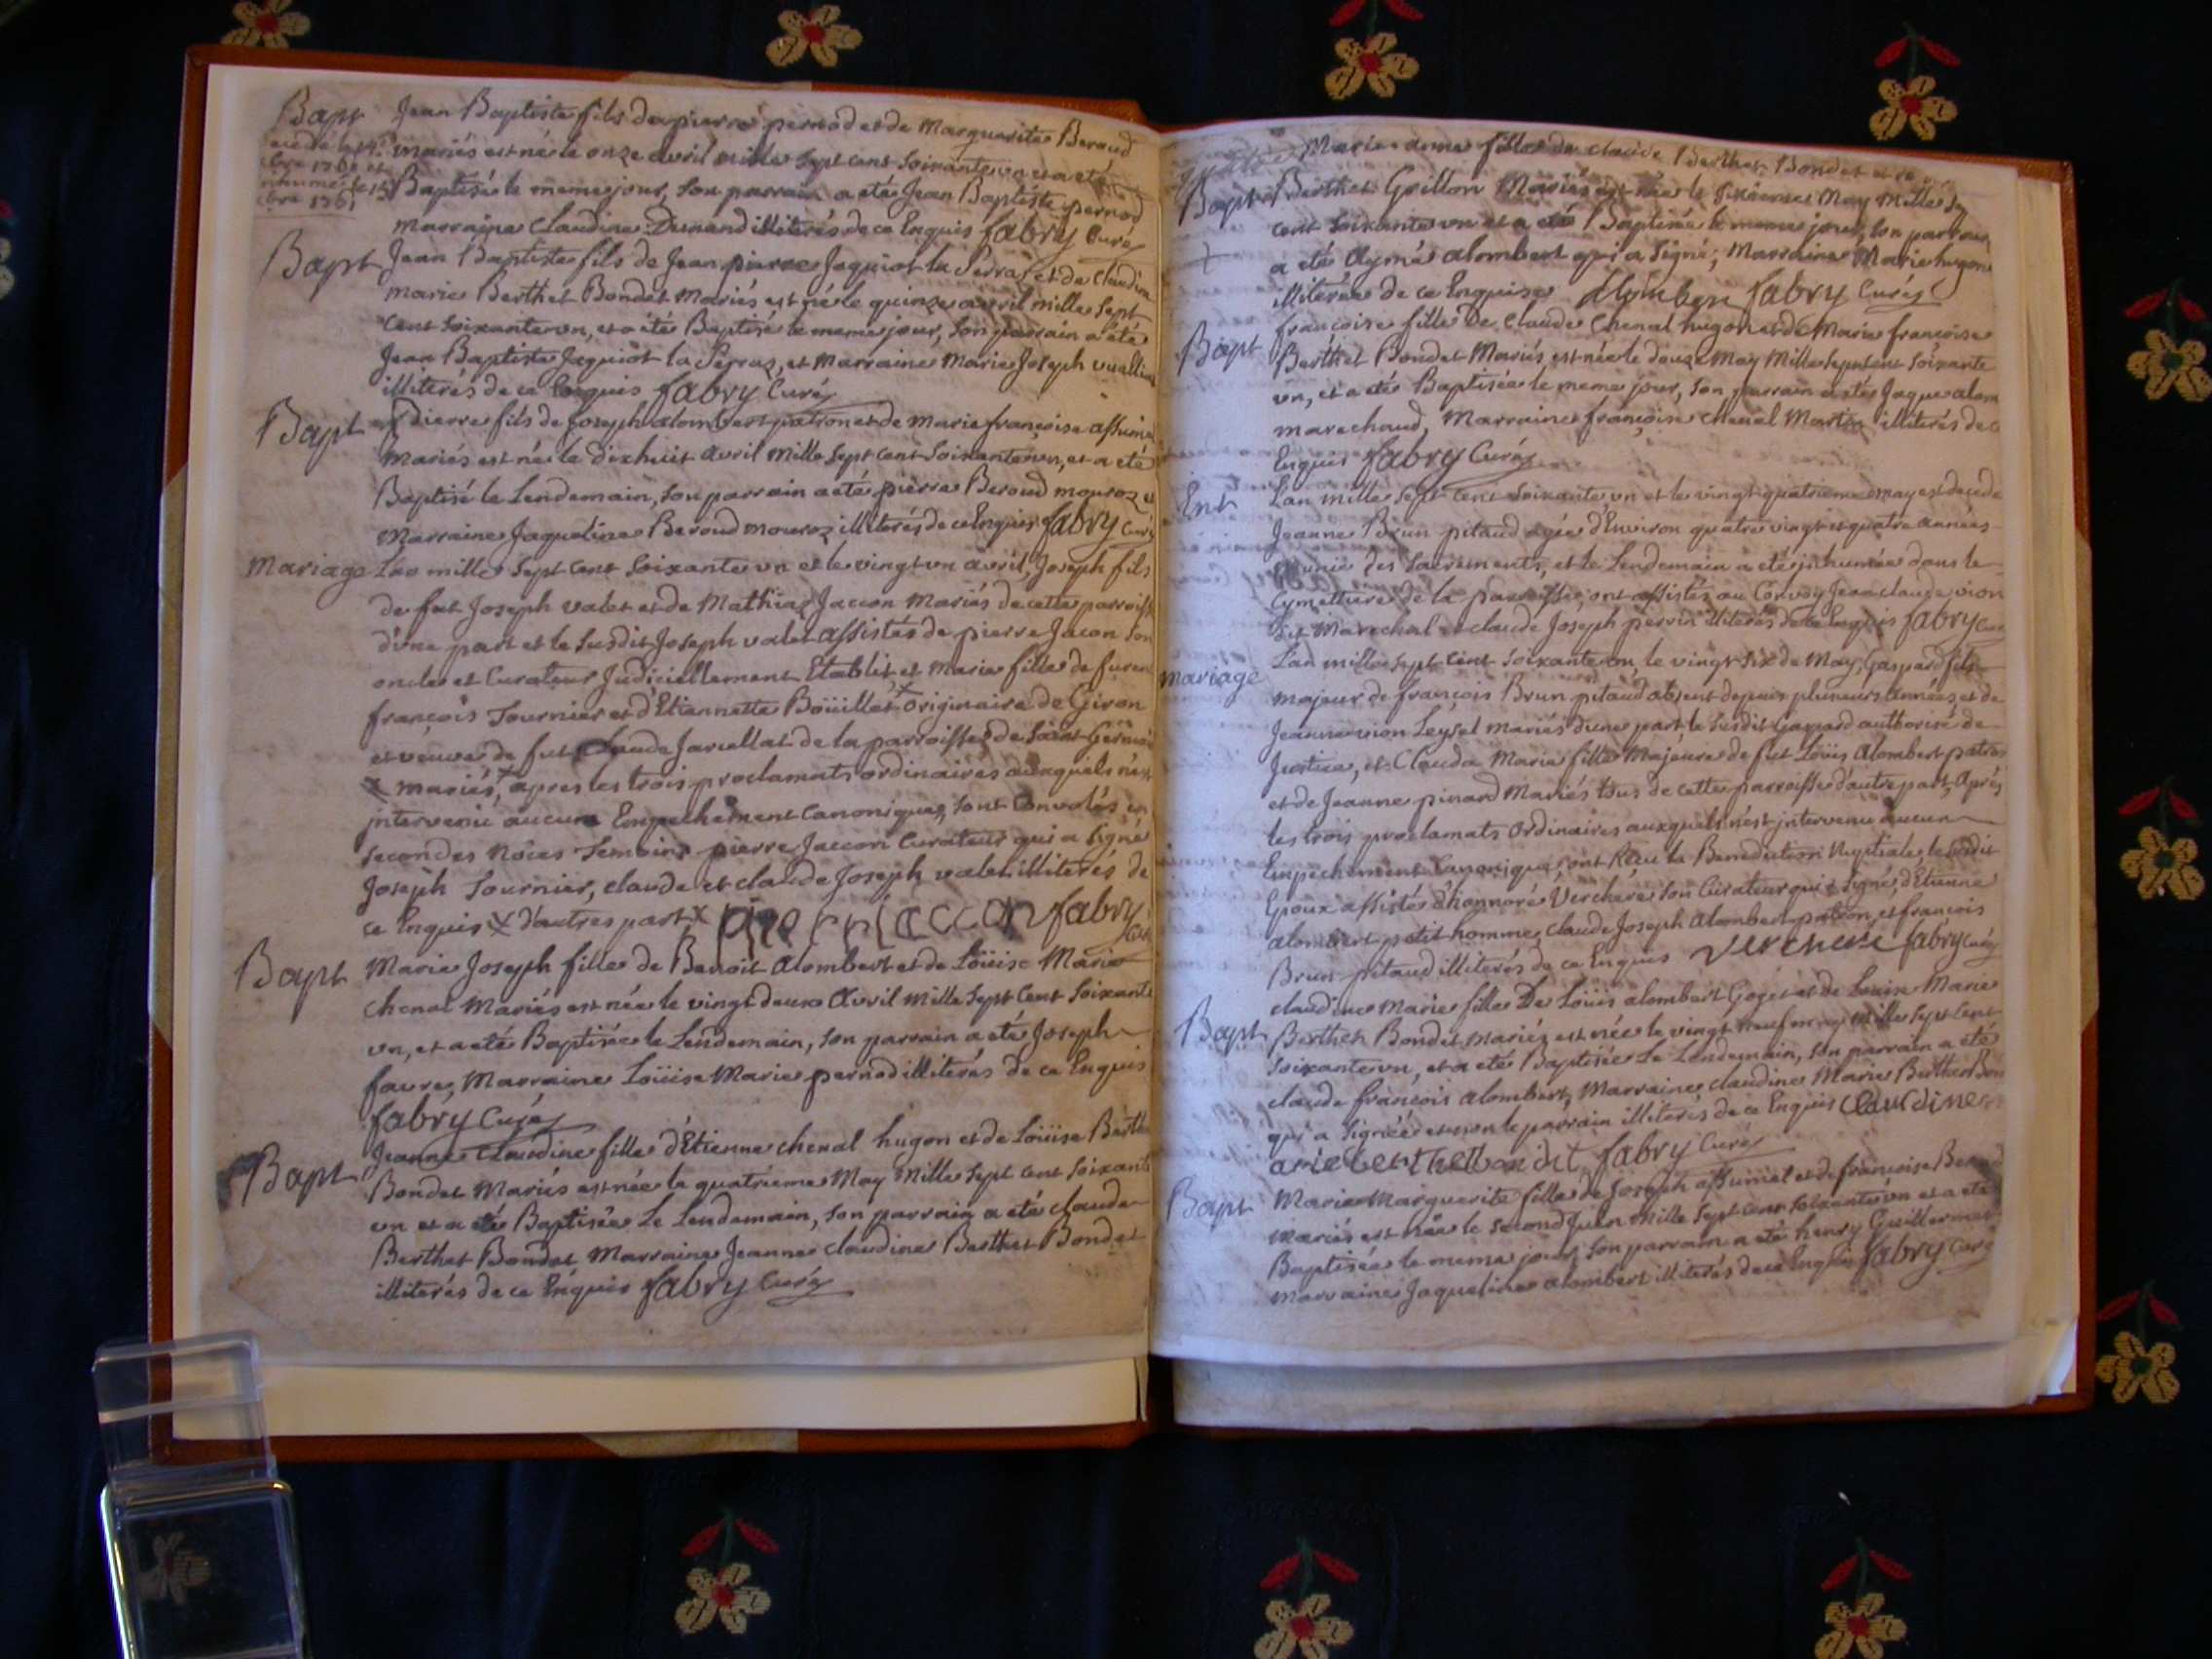 Bapt Jean Baptiste fils de pierre pernod et de Marguerite Beroud
mariés est né le onze avril mille sept cent soixante un et a eté
Baptisé le meme jour, son parrain a eté Jean Baptiste pernod
marraine Claudine Dunand illiterés de ce Enquis fabry Curé
Bapt Jean Baptiste fils de Jean pierre Jaquiot la Perraz et de Claudine
marie Berthet Bondet Mariés est né le quinze avril mille sept
Cent soixante un, et a été Baptisé le meme jour, son parrain a été
Jean Baptiste Jaquiot la Perraz, et Marraine Marie Joseph
illiterés de ce Enquis fabry Curé
Bapt pierre fils de Joseph alombert patron et de marie françoise
Mariés est né le dixhuit avril mille sept cent soixante un, et a eté
Baptisé le Lendemain, son parrain a eté pierre Beroud mouroz et
Marraine Jaqueline Beroud mouroz illiterés de ce Enquis fabry Curé
mariage L'an mille sept cent soixante un et le vingt un avril, Joseph fils
de fut Joseph valet et de Mathia Jaccon Mariés de cette parroisse
d'une part et le susdit Joseph valet assistés de pierre Jacon son
oncle et Curateur Judiciellement Etablit, et Marie fille de
françois Tournier et d'Etiennette Boüillet x originaire de Giron
et veuve de fut Claude Jarcellat de la parroisse de Saint Germain
x mariés, x apres les trois proclamats ordinaires auxquels n'est
intervenu aucun Empechement Canonique, sont Convolés en
secondes Nôces Temoins pierre Jaccon Curateur qui a signé
Joseph Tournier, claude et claude Joseph valet illiterés de
ce Enquis x d'autres part x pierre jaccon fabry Curé
Bapt Marie Joseph fille de Benoit Alombert et de Loüise Marie
Chenal Mariés est née le vingt deux Avril mille sept Cent Soixante
un, et a eté Baptisée le Lendemain, son parrain a eté Joseph
favre, Marraine Loüise Marie pernod illiterés de ce Enquis
fabry Curé
Bapt Jeanne Claudine fille d'Etienne chenal hugon et de Loüise Berthet
Bondet Mariés est née le quatrieme May Mille sept cent soixante
un et a eté Baptisée Le Lendemain, son parrain a eté claude
Berthet Bondet Marraine Jeanne claudine Berthet Bondet
illiterés de ce Enquis fabry Curé
Marie anne fille de claude Berthet Bondet et de
Bapt Berthet Grillon Mariés est née le sixieme May Mille sept
cent soixante un et a eté Baptisée le meme jour, son parrain
a eté Aymé alombert qui a signé, Marraine Marie hugon
illiterée de ce Enquise alombert fabry Curé
Bapt françoise fille De claude Chenal hugon et de Marie françoise
Berthet Bondet Mariés est née le douze May Mille sept cent soixante
un, et a eté Baptisée le meme jour, son parrain a eté Jaque alom
marechaud, Marraine françoise chenal Martin illiterés de ce
Enquis fabry Curé
Ent L'an mille sept cent soixante un et le vingt quatrieme may est decedé
Jeanne Brun pitaud agée d'Environ quatre vingt et quatre années
munie des Sacrements, et le Lendemain a eté inhumée dans le
Cymettiere de la parroisse, ont assistés au Convoy Jean claude vion
dit Marechal et claude Joseph perrin illiterés de ce Enquis fabry Curé
mariage L'an mille sept cent soixante un, le vingt six de May, Gaspard fils
majeur de françois Brun pitaud absent depuis plusieurs années et de
Jeanne vion Leysel mariés d'une part le susdit Gaspard authorisé de
Justice, et Clauda Marie fille Majeure de fut Loüis Alombert patron
et de Jeanne pinard Mariés tous de cette parroisse d'autre part, Après
les trois proclamats Ordinaires auxquels n'est intervenu aucun
Empechement Canonique, ont Reçu la Benediction Nuptiale, le susdit
Epoux assistés d'honnoré Verchere son Curateur qui a signé, d'Etienne
alombert petit homme, claude Joseph Alombert patron, et françois
Brun pitaud illiterés de ce Enquis verchere fabry Curé
Bapt claudine Marie fille De Loüis alombert Goget et de Loüise Marie
Berthet Bondet mariés est née le vingt neuf may Mille sept Cent
soixante un, et a eté Baptisée Le Lendemain, son parrain a eté
claude françois alombert, Marraine claudine Marie Berthet Bon
qui a signée et non le parrain illiterés de ce Enquis Claudine
arie berthet bondet fabry Curé
Bapt Marie Marguerite fille de Joseph assumel et de françoise Beroud
mariés est née le second Juin Mille sept cent soixante un et a eté
Baptisée le meme jour, son parrain a eté henry Guillermet
marraine Jaqueline alombert illiterés de ce Enquis fabry Curé